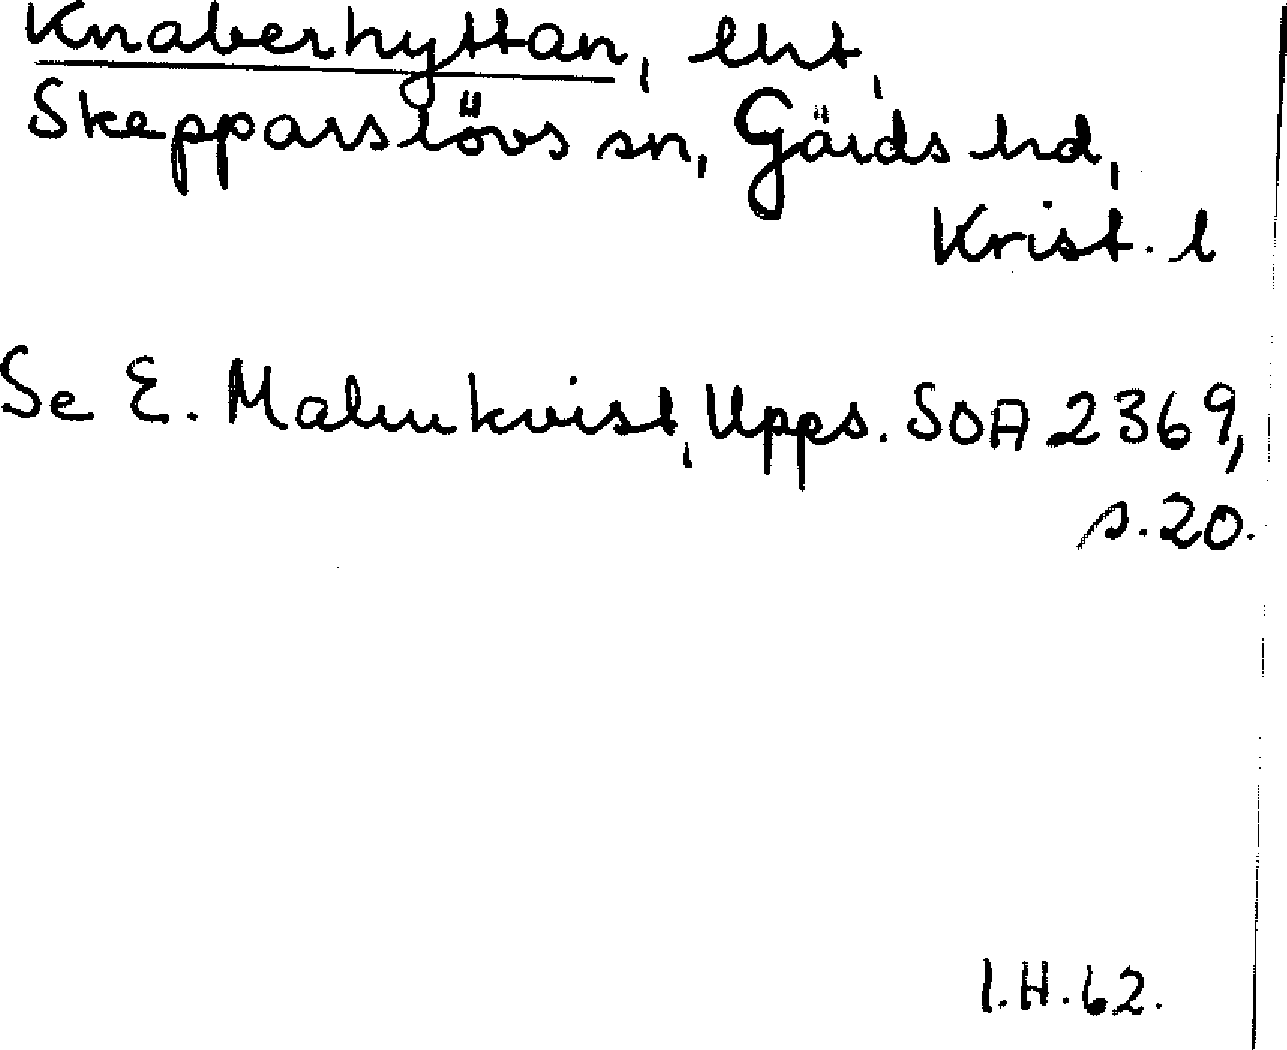 Knaberhyttan, lht,
Skepparslövs sn, Gärds hd,
Krist. l
Se E. Malmkvist, Upps. SOA 2369,
s. 20.
I.H. 62.